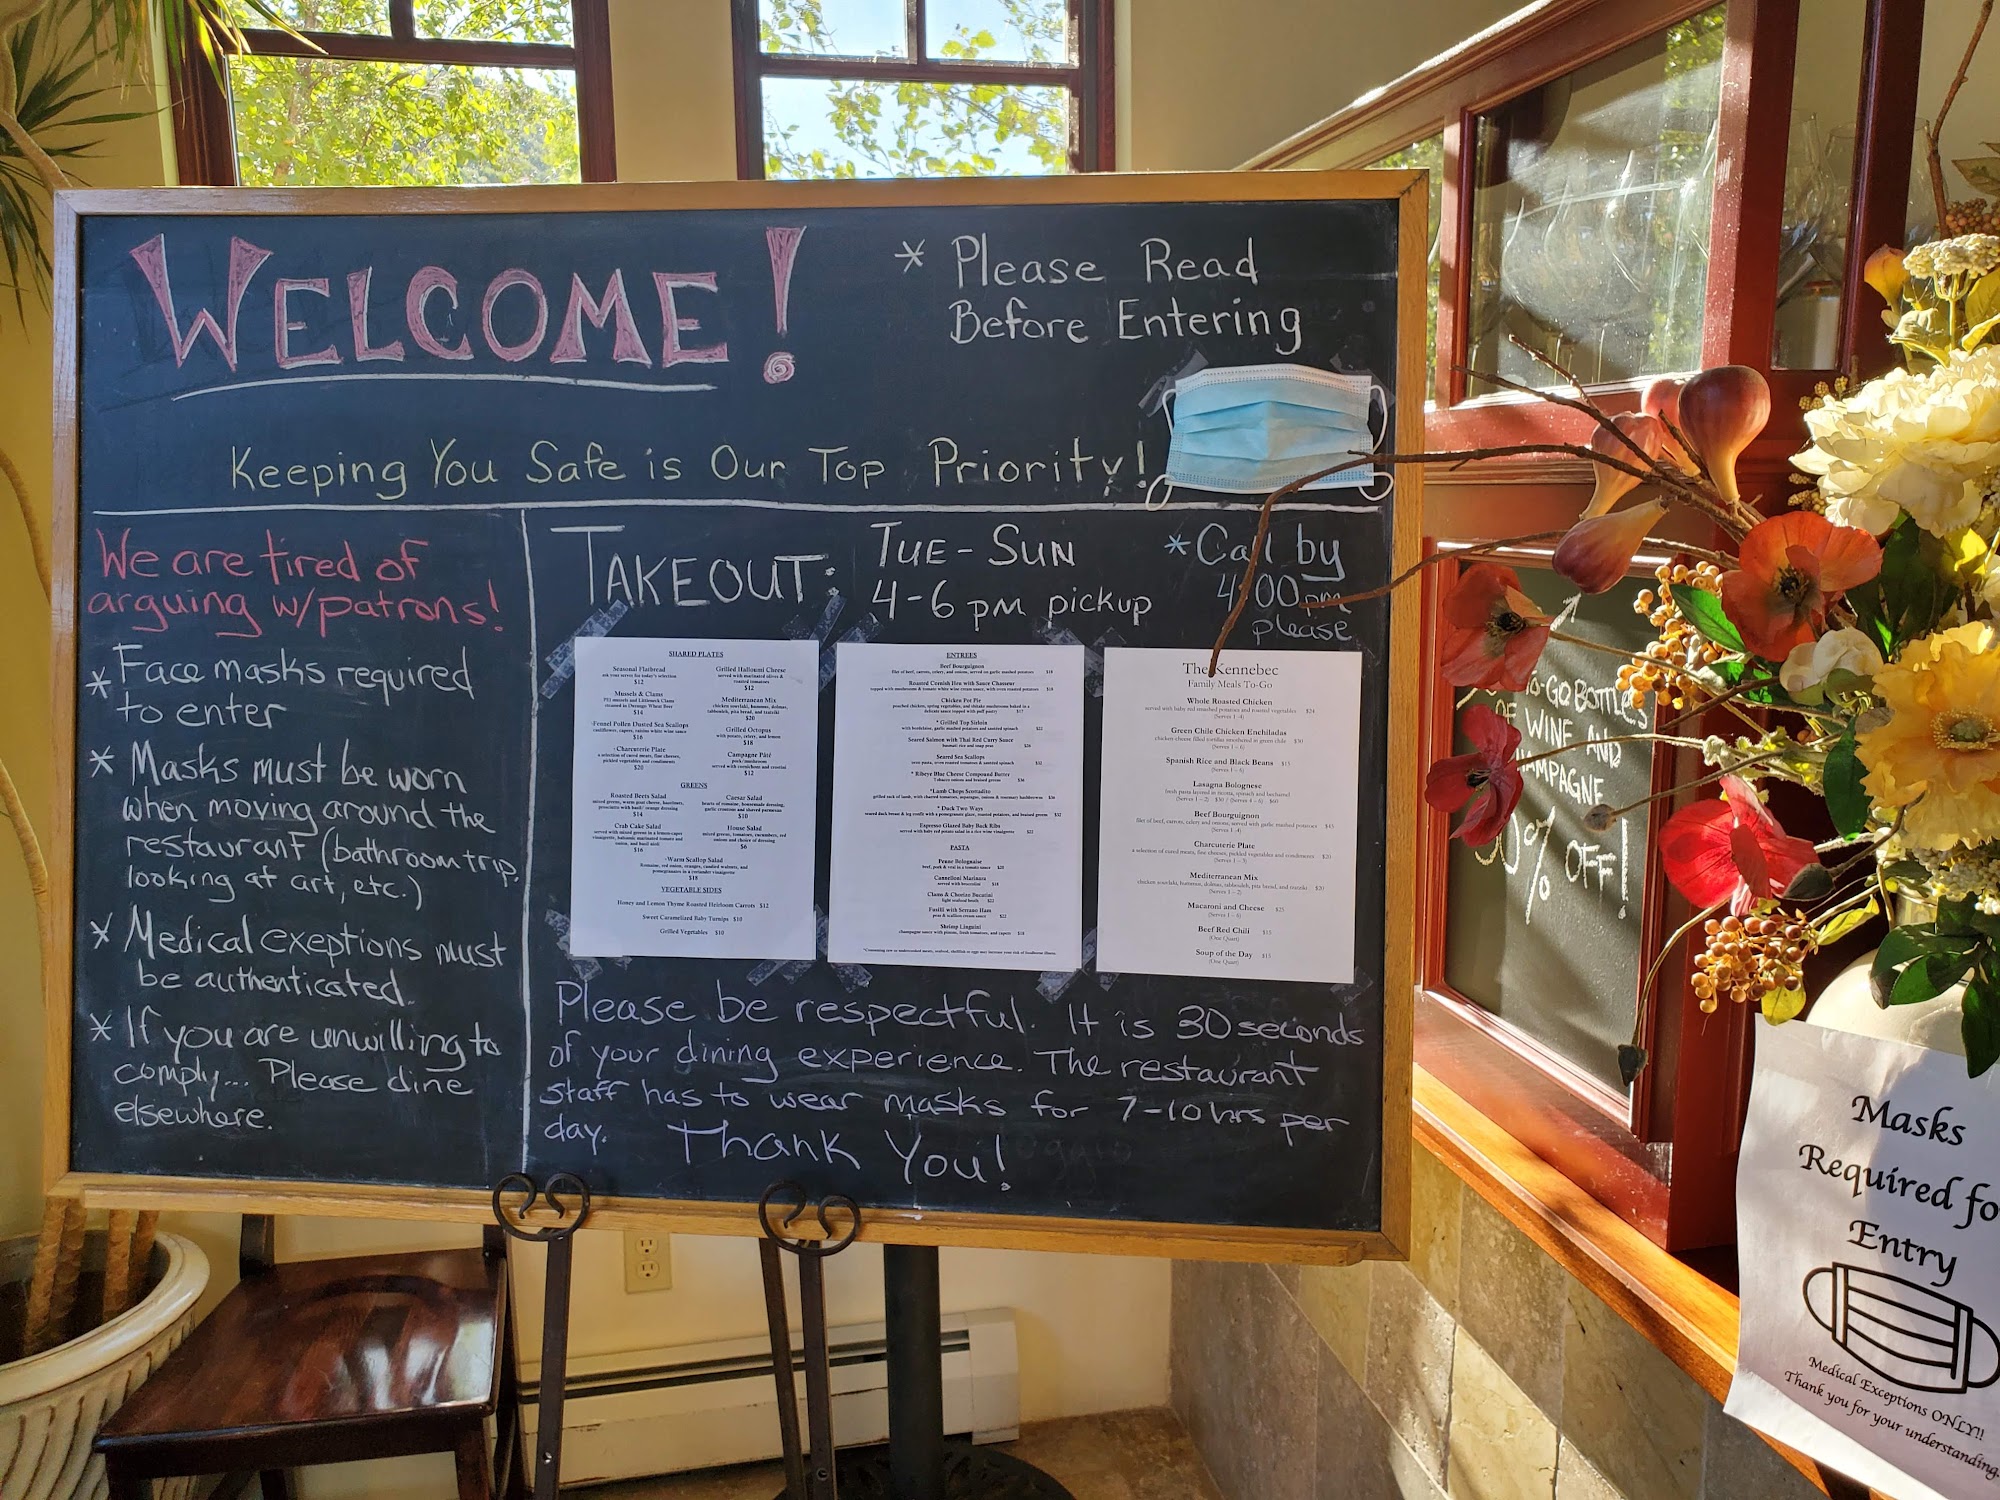 WELCOME!
* Please Read
Before Entering
Keeping You Safe is Our Top Priority!
We are tired of
arguing w/patrons!
* Face masks required
to enter
* Masks must be worn
when moving around the
restaurant (bathroom trip,
looking at art, etc.)
* Medical exeptions must
be authenticated.
* If you are unwilling to
comply... Please dine
elsewhere.
TAKEOUT:
TUE - SUN
4-6 pm pickup
* Call by
4:00pm
please
SHARED PLATES
Seasonal Flatbread
ask your server for today's selection
$12
Mussels & Clams
$14
Fennel Pollen Dusted Sea Scallops
$16
Charcuterie Plate
a selection of cured meats, fine cheeses,
pickled vegetables and condiments
$20
Grilled Halloumi Cheese
served with marinated olives &
roasted tomatoes
$12
Mediterranean Mix
$20
Grilled Octopus
$18
Campagne Pâté
$12
GREENS
Roasted Beets Salad
$14
Crab Cake Salad
$16
Caesar Salad
$10
House Salad
$6
Warm Scallop Salad
$18
VEGETABLE SIDES
Honey and Lemon Thyme Roasted Heirloom Carrots $12
Sweet Caramelized Baby Turnips $10
Grilled Vegetables $10
ENTREES
Beef Bourguignon
Roasted Cornish Hen with Sauce Chasseur
Chicken Pot Pie
* Grilled Top Sirloin
Seared Salmon with Thai Red Curry Sauce
Seared Sea Scallops
* Ribeye Blue Cheese Compound Butter
*Lamb Chops Scottadito
* Duck Two Ways
Espresso Glazed Baby Back Ribs
PASTA
Penne Bolognaise
Cannelloni Marinara
Clams & Chorizo Bucatini
Fusilli with Serrano Ham
Shrimp Linguini
The Kennebec
Family Meals To-Go
Whole Roasted Chicken
served with baby red smashed potatoes and roasted vegetables $24
(Serves 1 -4)
Green Chile Chicken Enchiladas
Spanish Rice and Black Beans $15
Lasagna Bolognese
Beef Bourguignon
Charcuterie Plate
a selection of cured meats, fine cheeses, pickled vegetables and condiments $20
Mediterranean Mix
Macaroni and Cheese $25
Beef Red Chili $15
(One Quart)
Soup of the Day $15
(One Quart)
Please be respectful. It is 30 seconds
of your dining experience. The restaurant
staff has to wear masks for 7-10 hrs per
day. Thank You!
TO-GO BOTTLES
OF WINE AND
CHAMPAGNE
50% OFF!
Masks
Required fo
Entry
Medical Exceptions ONLY!!
Thank you for your understanding.